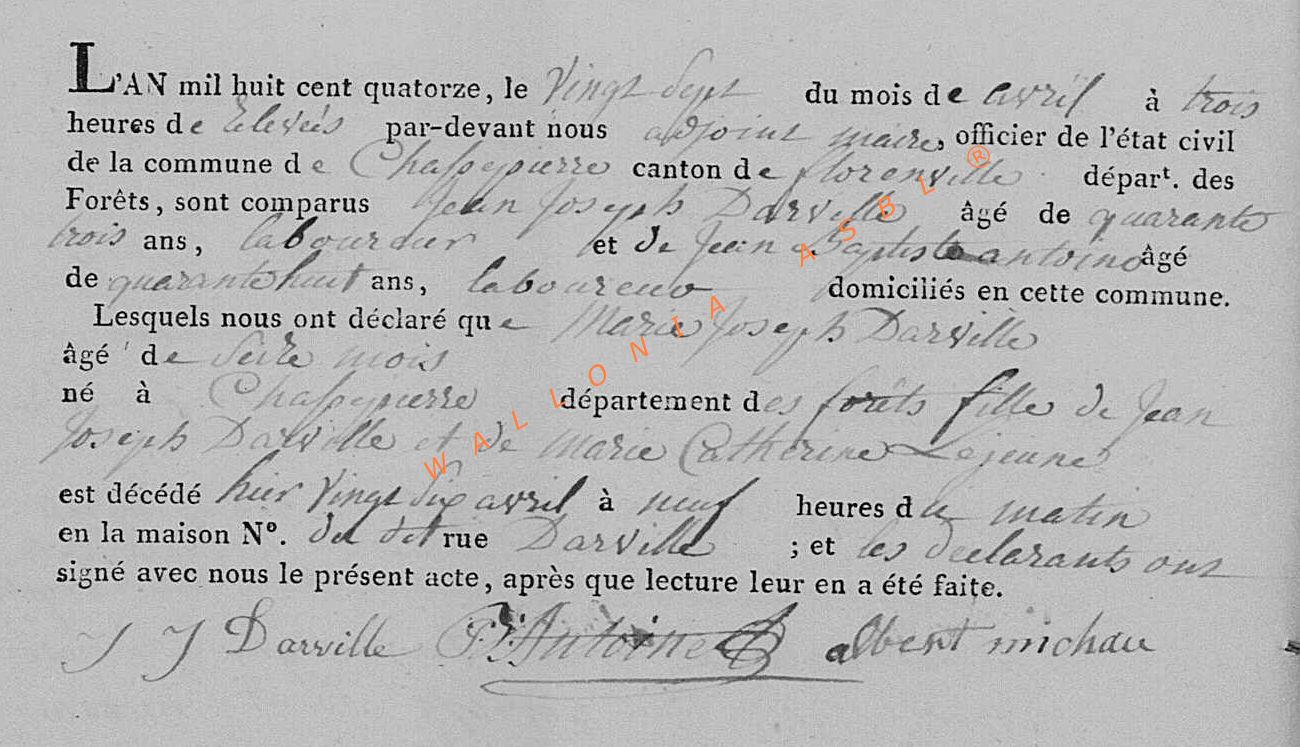 L'AN mil huit cent quatorze, le Vingt Sept du mois de avril à trois
heures de Relevés par-devant nous adjoint maire, officier de l'état civil
de la commune de Chassepierre canton de florenville départ. des
Forêts, sont comparus Jean Joseph Darville âgé de quarante
trois ans, laboureur et de Jean Baptiste antoine âgé
de quarante huit ans, laboureur domiciliés en cette commune.
Lesquels nous ont déclaré que Marie Joseph Darville
âgé de Seize mois
né à Chassepierre département des forêts fille de Jean
Joseph Darville et de Marie Catherine Lejeune
est décédé hier Vingt Six avril à neuf heures du matin
en la maison Nº. du dit rue Darville ; et les declarants ont
signé avec nous le présent acte, après que lecture leur en a été faite.
J J Darville Antoine albert michau
WALLONIA ASBL ®